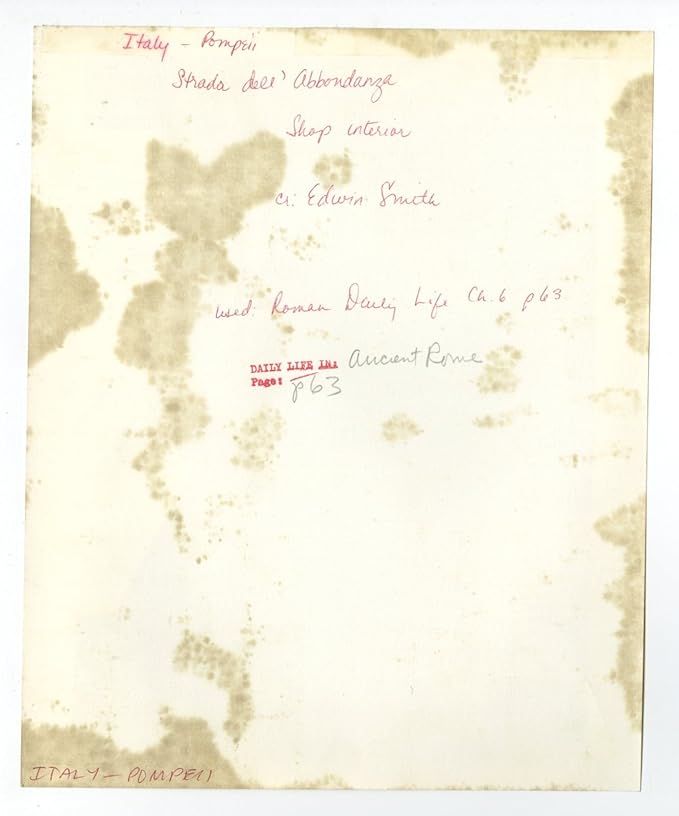 Italy - Pompeii
Strada dell' Abbondanza
Shop interior
cr: Edwin Smith
used: Roman Daily Life Ch. 6 p 63
DAILY LIFE IN: Ancient Rome
Page: p63
ITALY - POMPEII